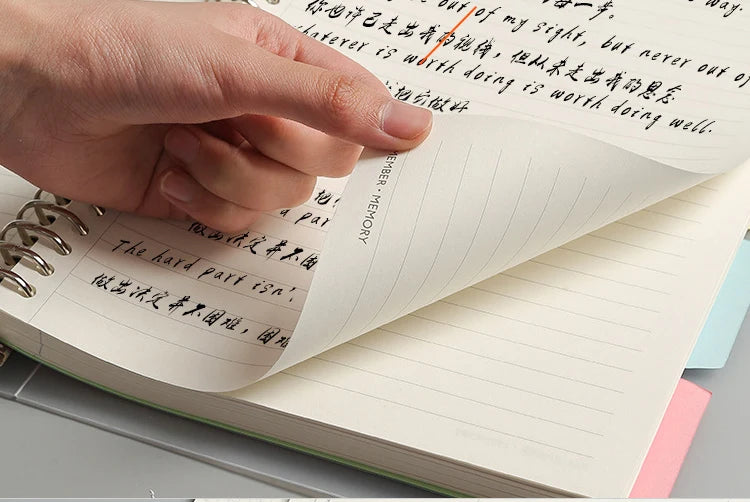 out of my sight, but never out of
你也许已走出我的视线，但从未走出我的思念
whatever is worth doing is worth doing well.
把它做好
MEMBER · MEMORY
做出决定并不困
The hard part isn'
做出决定并不困难，困难